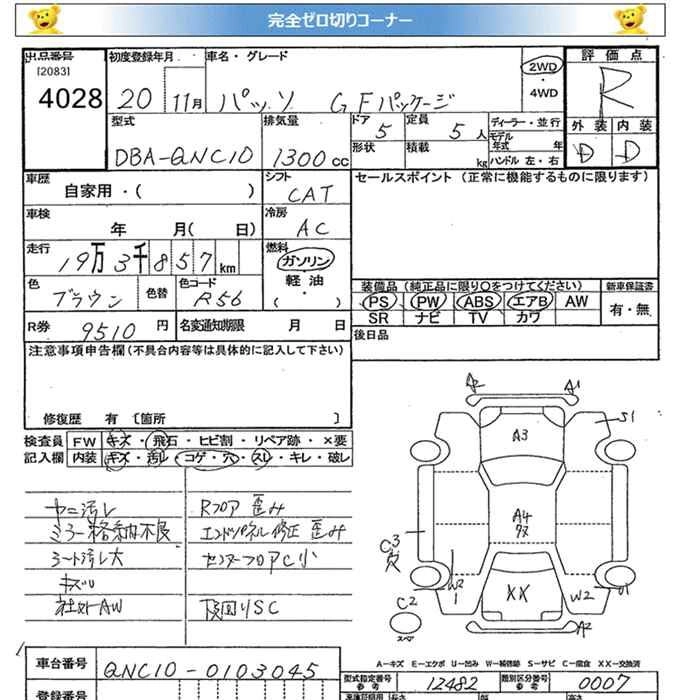 完全ゼロ切りコーナー
出品番号 [2083] 4028
初度登録年月 20 11月
車名・グレード パッソ G Fパッケージ
2WD・4WD
評価点 R
外装 D 内装 D
型式 DBA-QNC10
排気量 1300cc
ドア 5 形状
定員 5人 積載 kg
ディーラー・並行
モデル年式 年
ハンドル 左・右
車歴 自家用・( )
シフト CAT
セールスポイント (正常に機能するものに限ります)
車検 年 月( 日)
冷房 AC
走行 19万3千857km
燃料 ガソリン・軽油・( )
色 ブラウン 色替 色コード R56
装備品 (純正品に限り○をつけてください)
新車保証書 有・無
PS PW ABS エアB AW
SR ナビ TV カワ
R券 9510円 名変通知期限 月 日
後日品
注意事項申告欄(不具合内容等は具体的に記入して下さい)
修復歴 有 [箇所 ]
検査員記入欄
FW キズ・飛石・ヒビ割・リペア跡・×要
内装 キズ・汚レ・コゲ・穴・スレ・キレ・破レ
ヤニ汚レ
ミラー格納不良
シート汚レ大
キズU
社外AW
Rフロア 歪み
エンドパネル修正 歪み
センターフロアC小
下回りSC
A2 A1
S1
A3
A4
XX
C3
W2
1
W2
U1
C2
スペア
A2
A-キズ E-エクボ U-凹み W-補修跡 S-サビ C-腐食 XX-交換済
車台番号 QNC10-0103045
型式指定番号 参考 12482
類別区分番号 参考 0007
登録番号
長さ